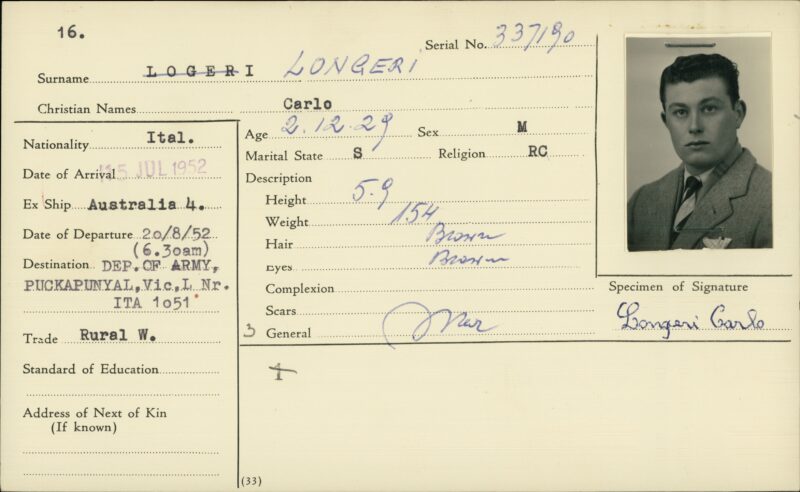 16.
Serial No. 337190
Surname LOGERI LONGERI
Christian Names Carlo
Nationality Ital.
Date of Arrival 15 JUL 1952
Ex Ship Australia 4.
Date of Departure 20/8/52
(6.30am)
Destination DEP.OF ARMY,
PUCKAPUNYAL,Vic,L Nr.
ITA 1051
Trade Rural W.
Standard of Education
Address of Next of Kin
(If known)
Age 2.12.29 Sex M
Marital State S Religion RC
Description
Height 5.9
Weight 154
Hair Brown
Eyes Brown
Complexion
Scars
3 General
(33)
Specimen of Signature
Longeri Carlo